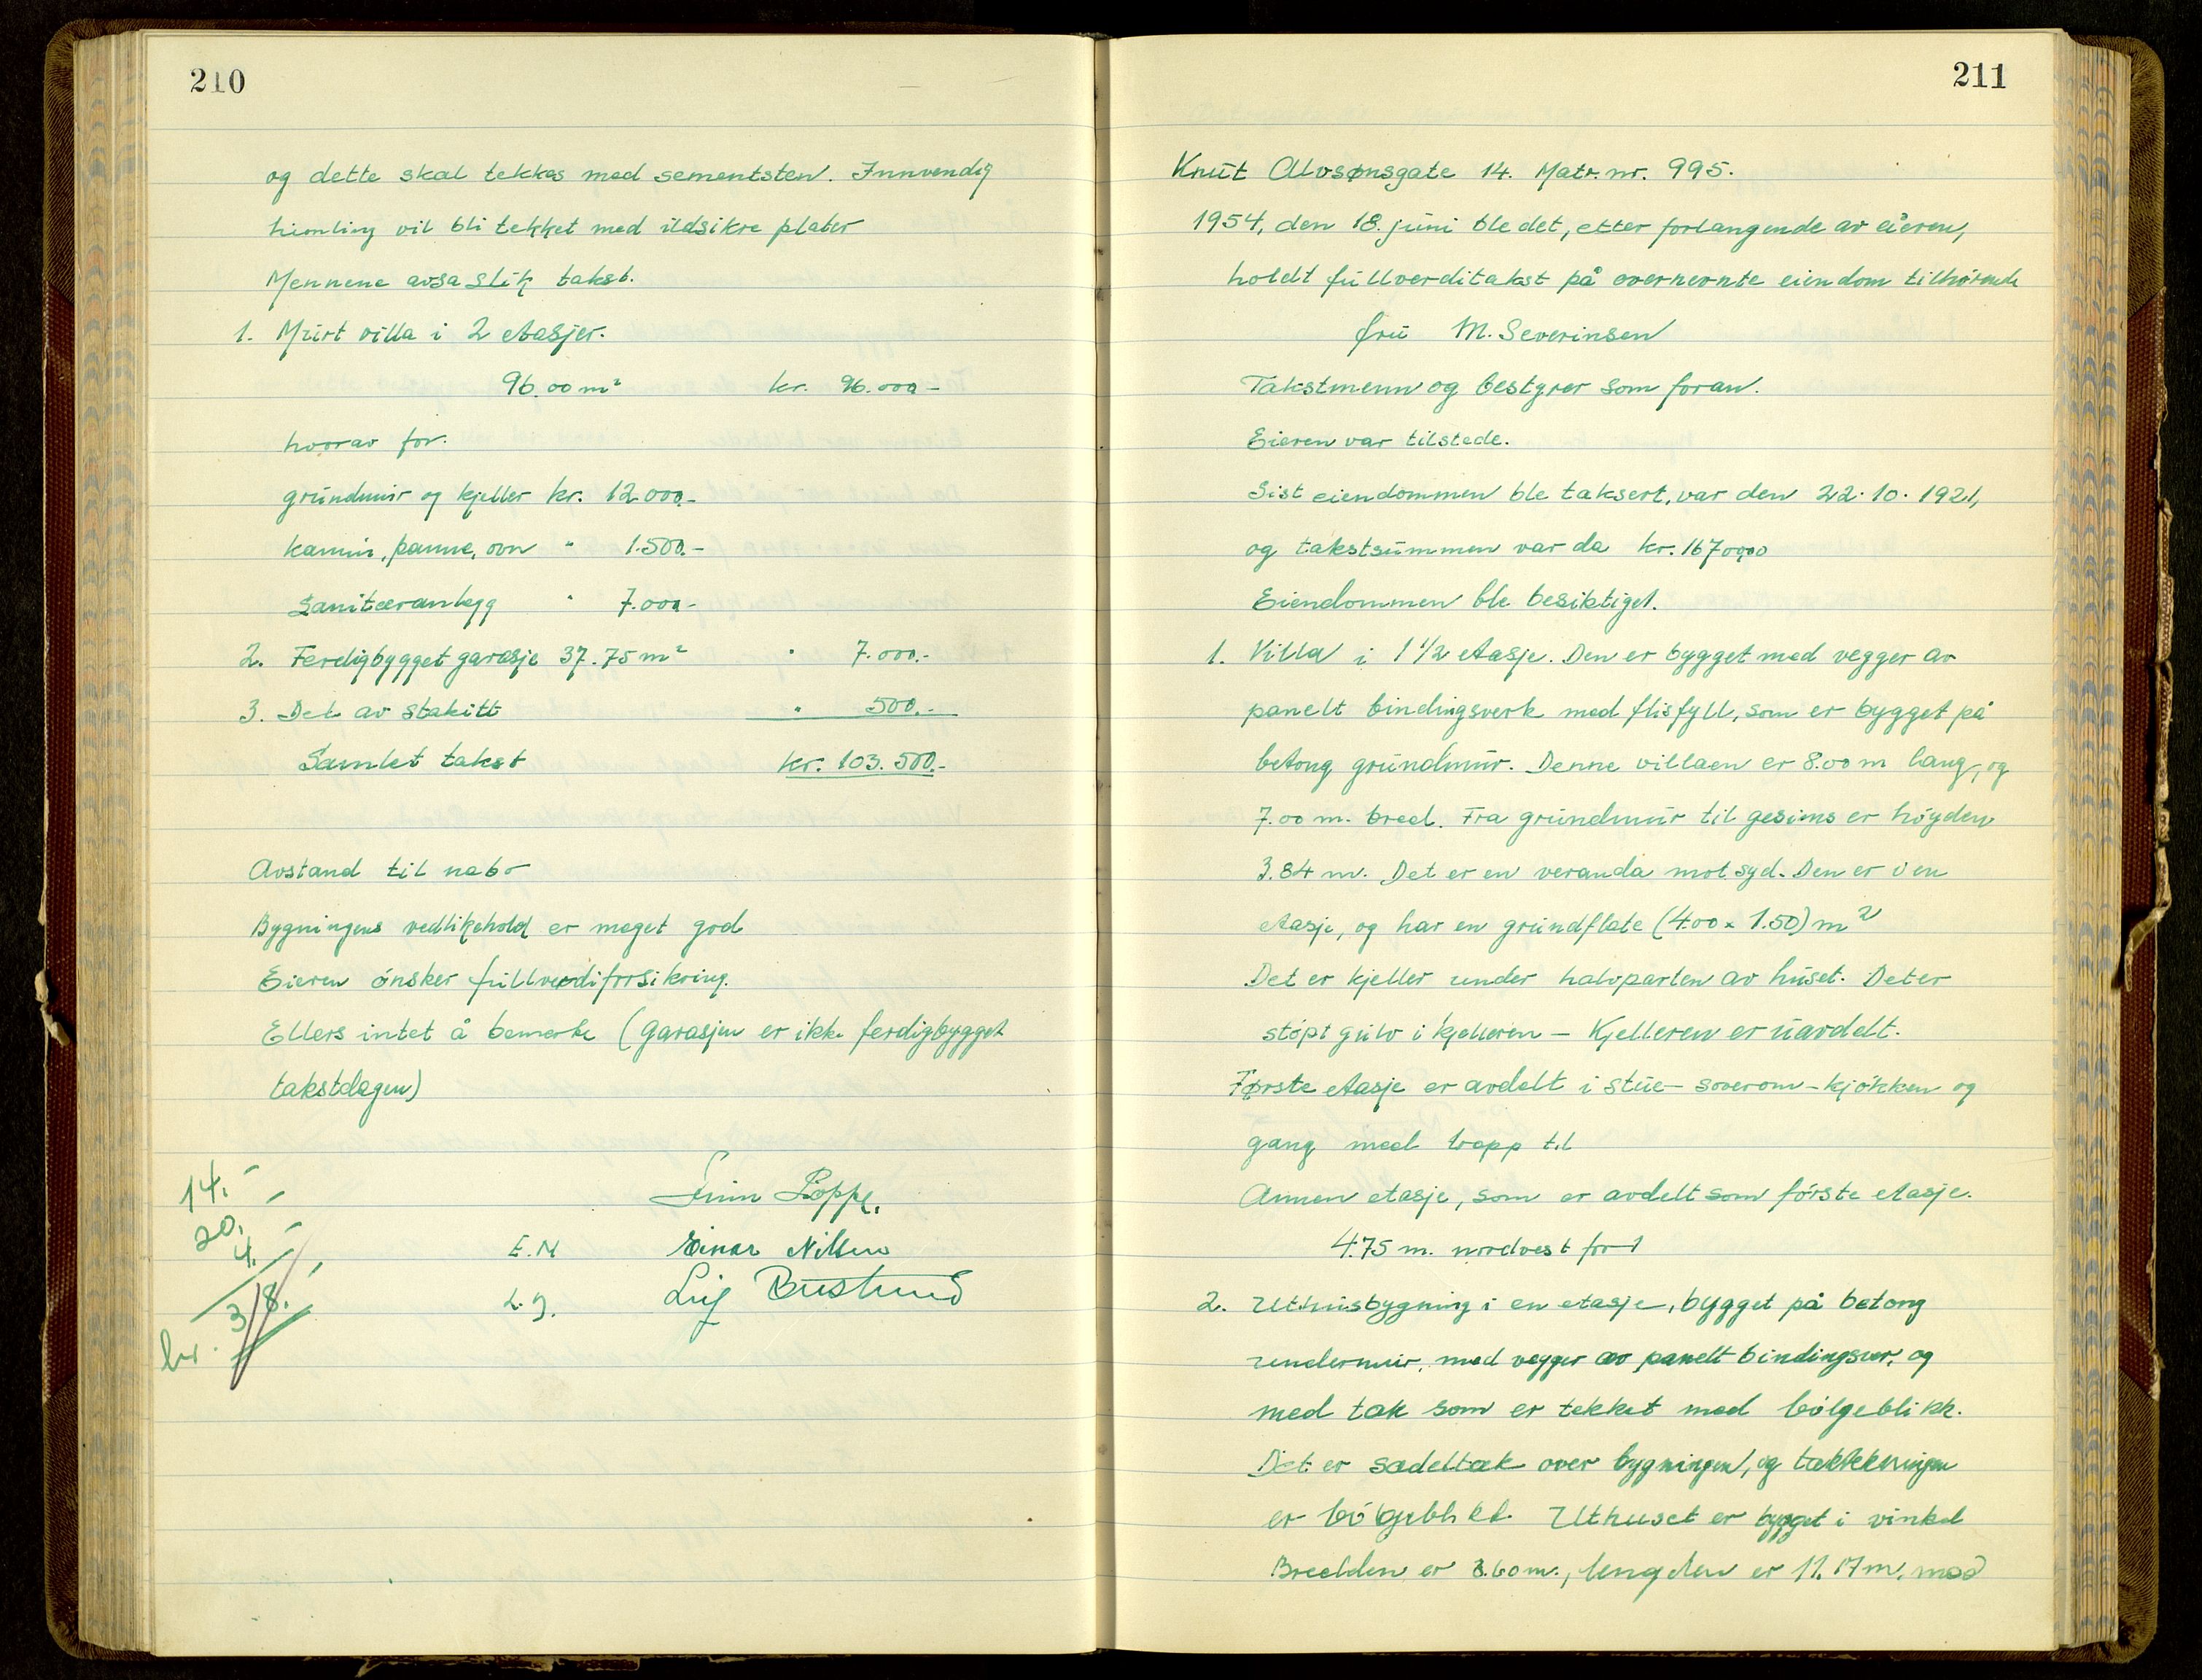 210
og dette skal tekkes med sementsten. Innvendig
himling vil bli tekket med ildsikre plater
Mennene avsa slik takst.
1. Murt villa i 2 etasjer.
96.00 m² kr. 96.000-
hvorav for.
grundmur og kjeller kr. 12.000.-
kamin, panne, ovn " 1.500.-
Saniteranlegg " 7.000-
2. Ferdigbygget garasje 37.75 m² " 7.000.-
3. Del av stakitt " 500.-
Samlet takst kr. 103.500.-
Avstand til nabo
Bygningens vedlikehold er meget god
Eieren ønsker fullverdiforsikring.
Ellers intet å bemerke (garasjen er ikke ferdigbygget
takstdagen)
14.-
20.-
4.-
38.-
kr.
E.N Einar Nilsen
L.J.
211
Knut Alvsønsgate 14. Matr. nr. 995.
1954, den 18. juni ble det, etter forlangende av eieren,
holdt fullverditakst på overnevnte eiendom tilhørende
fru M. Severinsen
Takstmenn og bestyrer som foran.
Eieren var tilstede.
Sist eiendommen ble taksert, var den 22.10.1921,
og takstsummen var da kr. 16700,00
Eiendommen ble besiktiget.
1. Villa i 1 1/2 etasje. Den er bygget med vegger av
panelt bindingsverk med flisfyll, som er bygget på
betong grundmur. Denne villaen er 8.00 m lang, og
7.00 m. bred. Fra grundmur til gesims er høyden
3.84 m. Det er en veranda mot syd. Den er i en
etasje, og har en grundflate (4.00 x 1.50) m²
Det er kjeller under halvparten av huset. Det er
støpt gulv i kjelleren - Kjelleren er uavdelt.
Første etasje er avdelt i stue - soverom - kjøkken og
gang med trapp til
Annen etasje, som er avdelt som første etasje.
4.75 m. nordvest for 1
2. Uthusbygning i en etasje, bygget på betong
undermur, med vegger av panelt bindingsver, og
med tak som er tekket med bølgeblikk.
Det er sadeltak over bygningen, og takktekningen
er bølgeblikk. Uthuset er bygget i vinkel
Bredden er 3.60 m., lengden er 11.17 m. med